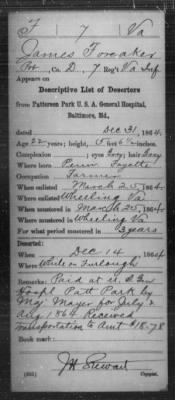 F 7 Va
James Foraker
Pvt, Co. D, 7 Reg't Va Inf.
Appears on
Descriptive List of Deserters
from Patterson Park U. S. A. General Hospital,
Baltimore, Md.,
dated Dec 31, 1864.
Age 22 years; height, 5 feet 6 ½ inches.
Complexion ; eyes Gray; hair Gray
Where born Penn Fayette
Occupation Farmer
When enlisted March 25, 1864
Where enlisted Wheeling Va
When mustered in March 25, 1864
Where mustered in Wheeling Va
For what period mustered in 3 years
Deserted:
When Dec 14 1864
Where While on Furlough
Remarks: Paid at U. S. Gen
Hospl Patt Park by
Maj Mayer for July &
Aug 1864 Received
transportation to Amt $18.78
Book mark:
J M Stewart
Copyist.